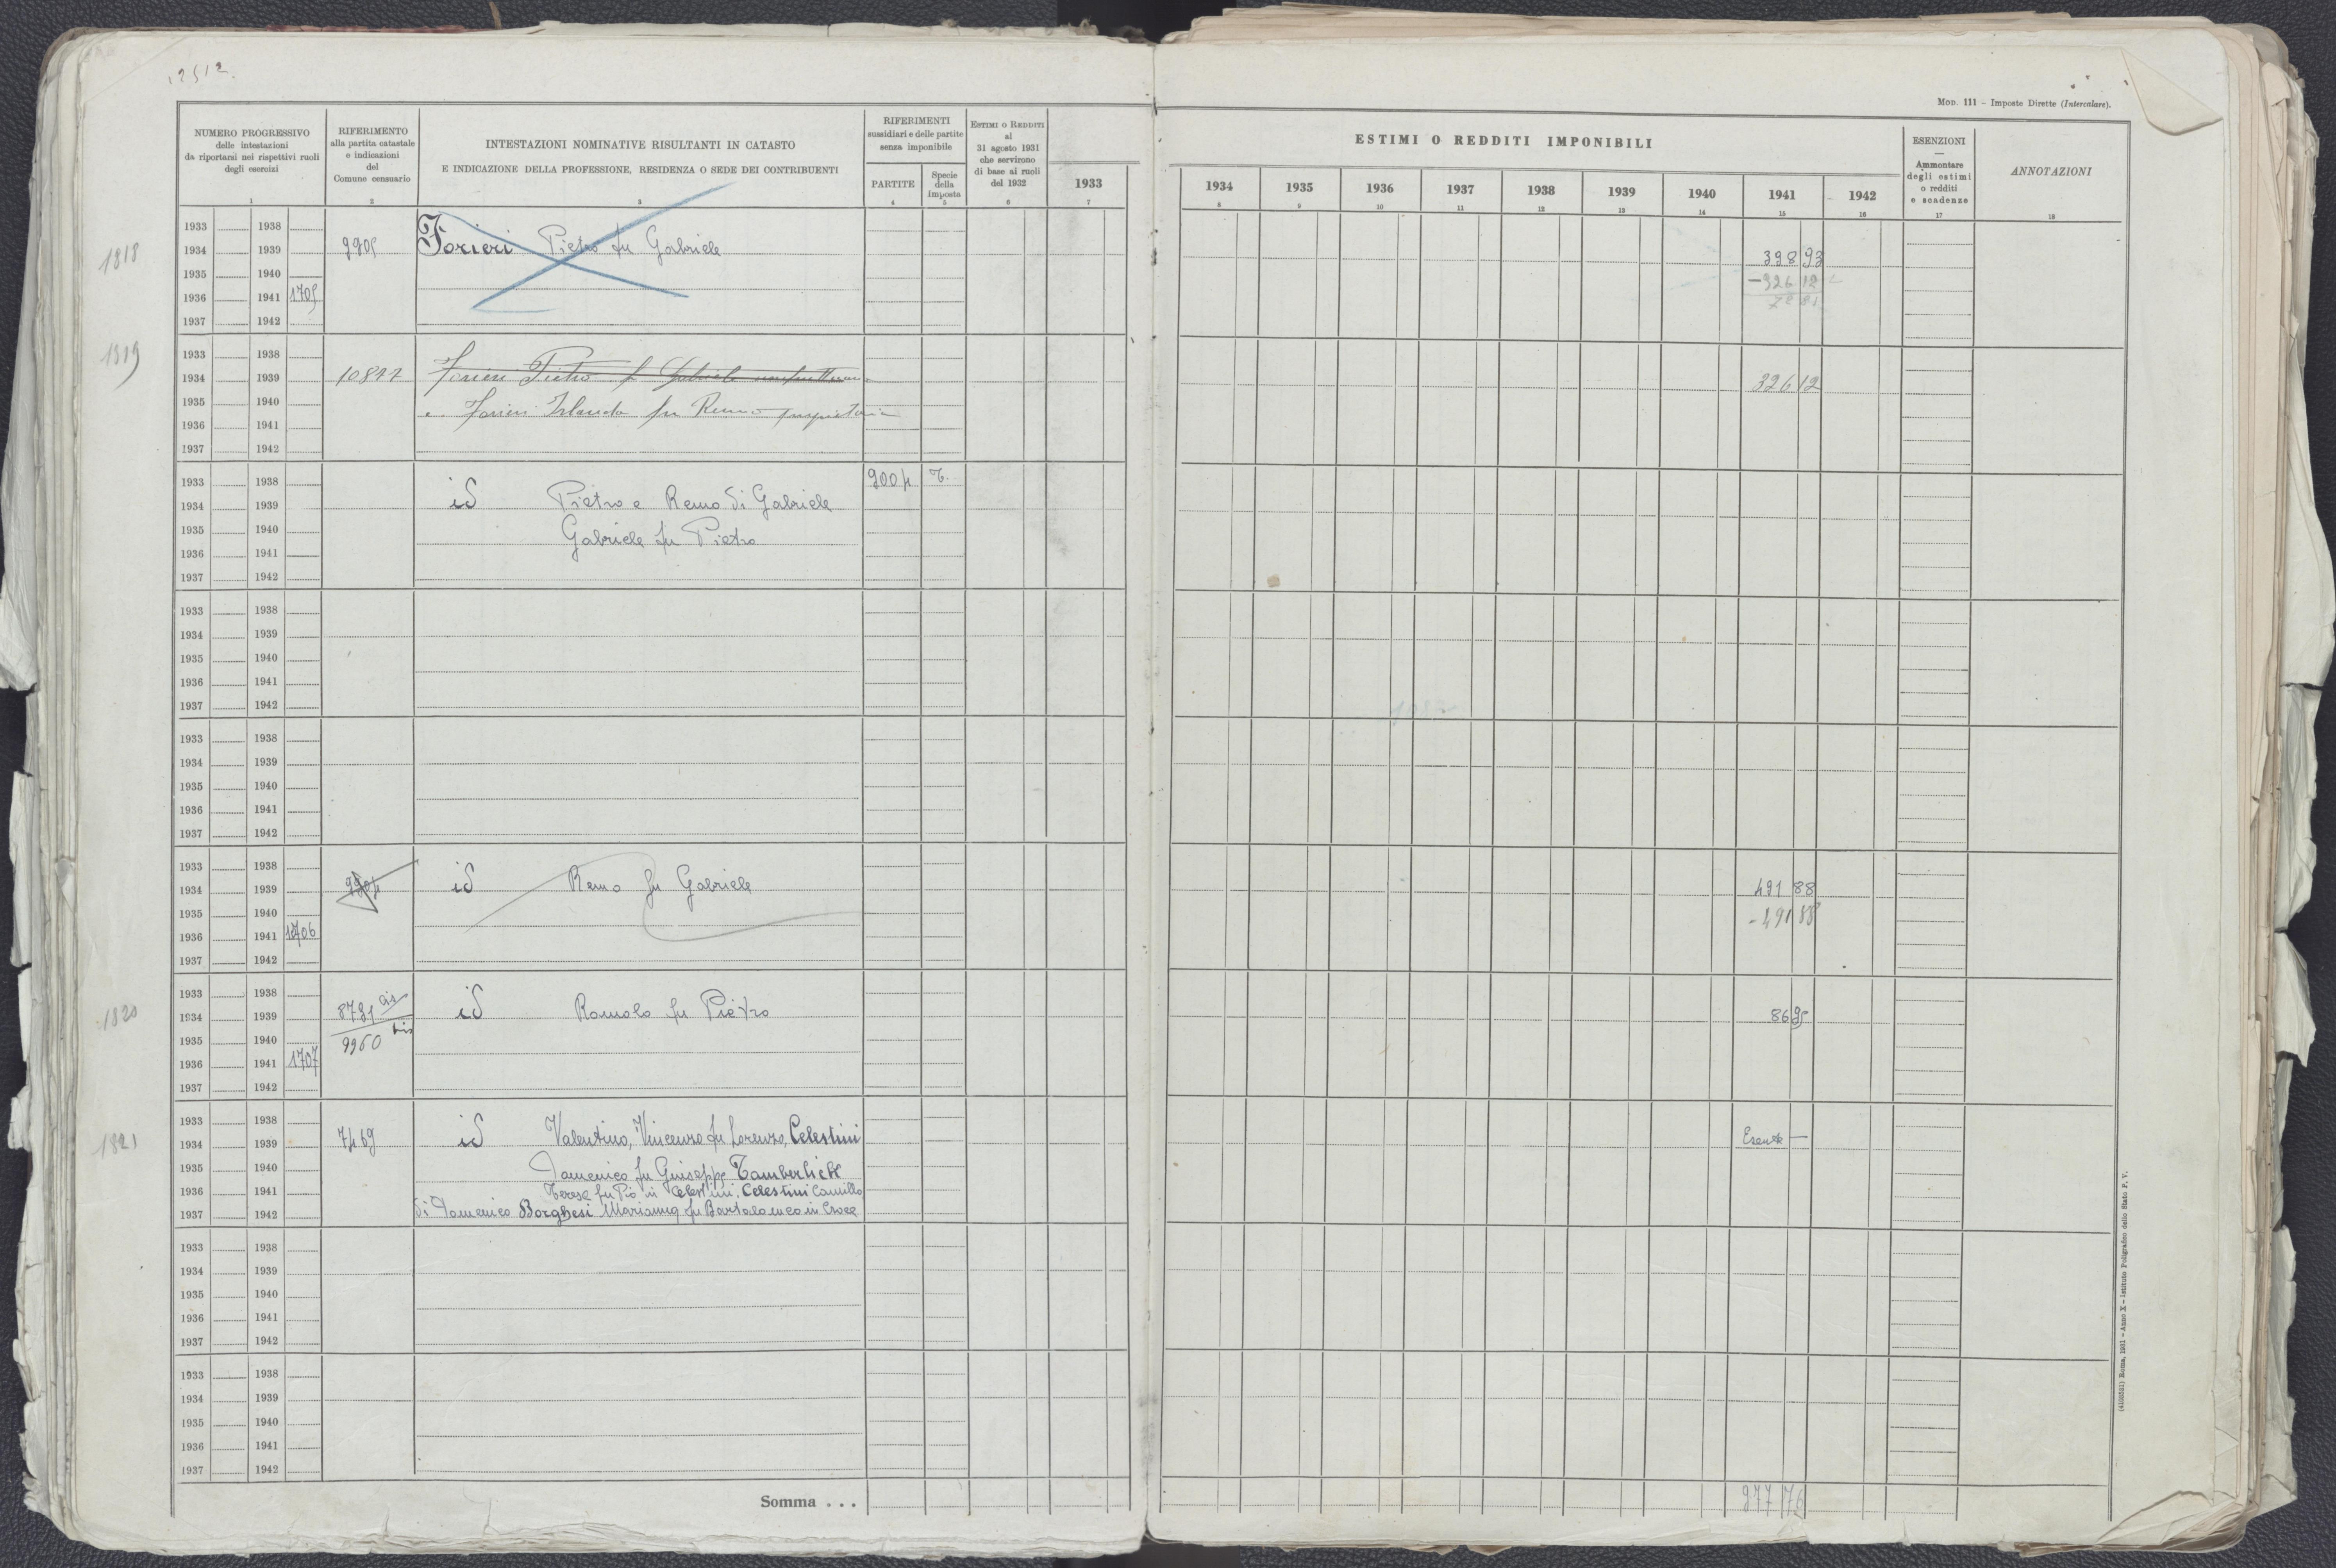 12512.
MOD. 111 – Imposte Dirette (Intercalare).
NUMERO PROGRESSIVO
delle intestazioni
da riportarsi nei rispettivi ruoli
degli esercizi
1
RIFERIMENTO
alla partita catastale
e indicazioni
del
Comune censuario
2
INTESTAZIONI NOMINATIVE RISULTANTI IN CATASTO
E INDICAZIONE DELLA PROFESSIONE, RESIDENZA O SEDE DEI CONTRIBUENTI
3
RIFERIMENTI
sussidiari e delle partite
senza imponibile
PARTITE
4
Specie
della
imposta
5
ESTIMI O REDDITI
al
31 agosto 1931
che servirono
di base ai ruoli
del 1932
6
1933
7
ESTIMI O REDDITI IMPONIBILI
1934 1935 1936 1937 1938 1939 1940 1941 1942
8 9 10 11 12 13 14 15 16
ESENZIONI
—
Ammontare
degli estimi
o redditi
e scadenze
17
ANNOTAZIONI
18
1933 1938
1818 1934 1939 9905 Forieri Pietro fu Gabriele 398 93
1935 1940 -326 12
1936 1941 1705 72 81
1937 1942
1933 1938
1819 1934 1939 10877 Forieri Pietro fu Gabriele usufruttuario 326 12
1935 1940 e Forieri Iolanda fu Remo proprietaria
1936 1941
1937 1942
1933 1938 9004 T.
1934 1939 id Pietro e Remo di Gabriele
1935 1940 Gabriele fu Pietro
1936 1941
1937 1942
1933 1938
1934 1939
1935 1940
1936 1941
1937 1942
1933 1938
1934 1939
1935 1940
1936 1941
1937 1942
1933 1938
1934 1939 9904 id Remo fu Gabriele 491 88
1935 1940 -491 88
1936 1941 1706
1937 1942
1933 1938
1820 1934 1939 8731 id Romolo fu Pietro 86 95
1935 1940 9960 bis
1936 1941 1707
1937 1942
1933 1938
1821 1934 1939 7469 id Valentino, Vincenzo fu Lorenzo, Celestini Esente —
1935 1940 Domenico fu Giuseppe Tamberlich
1936 1941 Teresa fu Pio in Celestini, Celestini Camillo
1937 1942 di Domenico Borghesi Marianna fu Bartolomeo in Croce
1933 1938
1934 1939
1935 1940
1936 1941
1937 1942
1933 1938
1934 1939
1935 1940
1936 1941
1937 1942
Somma . . . 977 76
(4103581) Roma, 1931 – Anno X – Istituto Poligrafico dello Stato P. V.